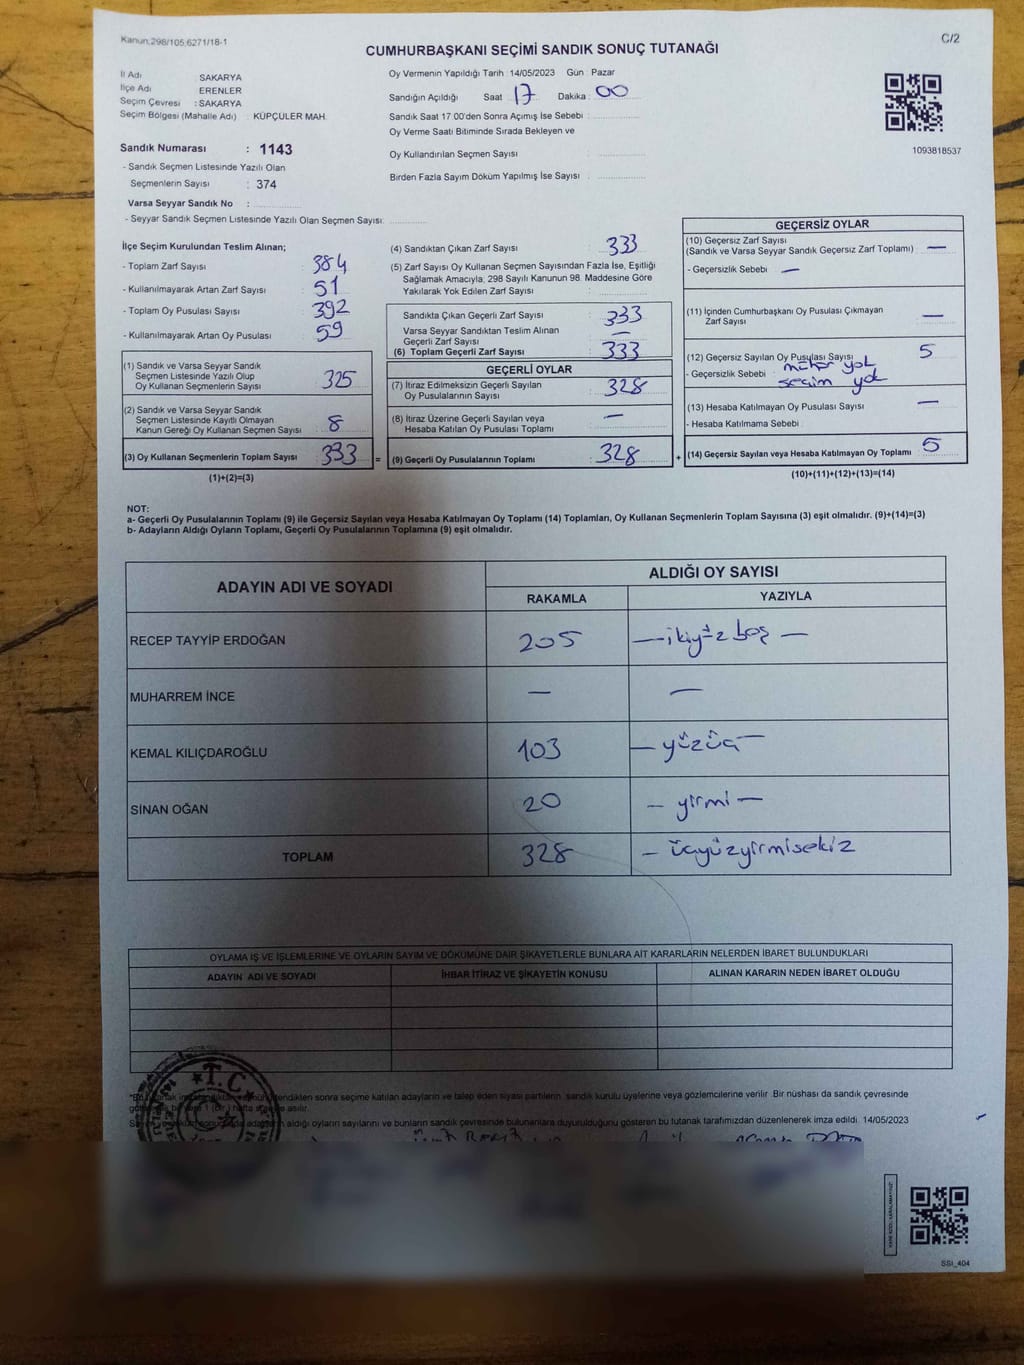 Kanun:298/105,6271/18-1
C/2
CUMHURBAŞKANI SEÇİMİ SANDIK SONUÇ TUTANAĞI
İl Adı SAKARYA
İlçe Adı ERENLER
Seçim Çevresi : SAKARYA
Seçim Bölgesi (Mahalle Adı) : KÜPÇÜLER MAH.
Oy Vermenin Yapıldığı Tarih : 14/05/2023 Gün : Pazar
Sandığın Açıldığı Saat : 17 Dakika : 00
Sandık Saat 17.00'den Sonra Açımış İse Sebebi :
Oy Verme Saati Bitiminde Sırada Bekleyen ve
Oy Kullandırılan Seçmen Sayısı :
Birden Fazla Sayım Döküm Yapılmış İse Sayısı :
1093818537
Sandık Numarası : 1143
- Sandık Seçmen Listesinde Yazılı Olan
Seçmenlerin Sayısı : 374
Varsa Seyyar Sandık No :
- Seyyar Sandık Seçmen Listesinde Yazılı Olan Seçmen Sayısı:
İlçe Seçim Kurulundan Teslim Alınan;
- Toplam Zarf Sayısı : 384
- Kullanılmayarak Artan Zarf Sayısı : 51
- Toplam Oy Pusulası Sayısı : 392
- Kullanılmayarak Artan Oy Pusulası : 59
(1) Sandık ve Varsa Seyyar Sandık
Seçmen Listesinde Yazılı Olup
Oy Kullanan Seçmenlerin Sayısı : 325
(2) Sandık ve Varsa Seyyar Sandık
Seçmen Listesinde Kayıtlı Olmayan
Kanun Gereği Oy Kullanan Seçmen Sayısı : 8
(3) Oy Kullanan Seçmenlerin Toplam Sayısı : 333 =
(1)+(2)=(3)
(4) Sandıktan Çıkan Zarf Sayısı : 333
(5) Zarf Sayısı Oy Kullanan Seçmen Sayısından Fazla İse, Eşitliği
Sağlamak Amacıyla, 298 Sayılı Kanunun 98. Maddesine Göre
Yakılarak Yok Edilen Zarf Sayısı :
Sandıkta Çıkan Geçerli Zarf Sayısı : 333
Varsa Seyyar Sandıktan Teslim Alınan
Geçerli Zarf Sayısı : —
(6) Toplam Geçerli Zarf Sayısı : 333
GEÇERLİ OYLAR
(7) İtiraz Edilmeksizin Geçerli Sayılan
Oy Pusulalarının Sayısı : 328
(8) İtiraz Üzerine Geçerli Sayılan veya
Hesaba Katılan Oy Pusulası Toplamı : —
(9) Geçerli Oy Pusulalarının Toplamı : 328 +
GEÇERSİZ OYLAR
(10) Geçersiz Zarf Sayısı
(Sandık ve Varsa Seyyar Sandık Geçersiz Zarf Toplamı) : —
- Geçersizlik Sebebi : —
(11) İçinden Cumhurbaşkanı Oy Pusulası Çıkmayan
Zarf Sayısı : —
(12) Geçersiz Sayılan Oy Pusulası Sayısı : 5
- Geçersizlik Sebebi : mühür yok
seçim yok
(13) Hesaba Katılmayan Oy Pusulası Sayısı : —
- Hesaba Katılmama Sebebi :
(14) Geçersiz Sayılan veya Hesaba Katılmayan Oy Toplamı : 5
(10)+(11)+(12)+(13)=(14)
NOT:
a- Geçerli Oy Pusulalarının Toplamı (9) ile Geçersiz Sayılan veya Hesaba Katılmayan Oy Toplamı (14) Toplamları, Oy Kullanan Seçmenlerin Toplam Sayısına (3) eşit olmalıdır. (9)+(14)=(3)
b- Adayların Aldığı Oyların Toplamı, Geçerli Oy Pusulalarının Toplamına (9) eşit olmalıdır.
ADAYIN ADI VE SOYADI ALDIĞI OY SAYISI
RAKAMLA YAZIYLA
RECEP TAYYİP ERDOĞAN 205 — ikiyüz beş —
MUHARREM İNCE — —
KEMAL KILIÇDAROĞLU 103 — yüzüç —
SİNAN OĞAN 20 — yirmi —
TOPLAM 328 — üçyüzyirmisekiz
OYLAMA İŞ VE İŞLEMLERİNE VE OYLARIN SAYIM VE DÖKÜMÜNE DAİR ŞİKAYETLERLE BUNLARA AİT KARARLARIN NELERDEN İBARET BULUNDUKLARI
ADAYIN ADI VE SOYADI İHBAR İTİRAZ VE ŞİKAYETİN KONUSU ALINAN KARARIN NEDEN İBARET OLDUĞU
T.C
sonra seçime katılan adayların ve talep eden siyasi partilerin sandık kurulu üyelerine veya gözlemcilerine verilir. Bir nüshası da sandık çevresinde
asılır.
aldığı oyların sayılarını ve bunların sandık çevresinde bulunanlara duyurulduğunu gösteren bu tutanak tarafımızdan düzenlenerek imza edildi. 14/05/2023
SSI_404